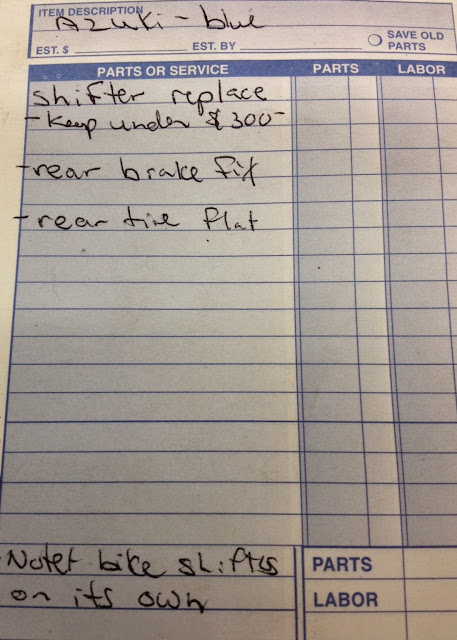 ITEM DESCRIPTION
Azuki - blue
EST. $ EST. BY SAVE OLD PARTS
PARTS OR SERVICE PARTS LABOR
shifter replace
- keep under $300-
- rear brake fix
- rear tire flat
Note: bike shifts
on its own
PARTS
LABOR